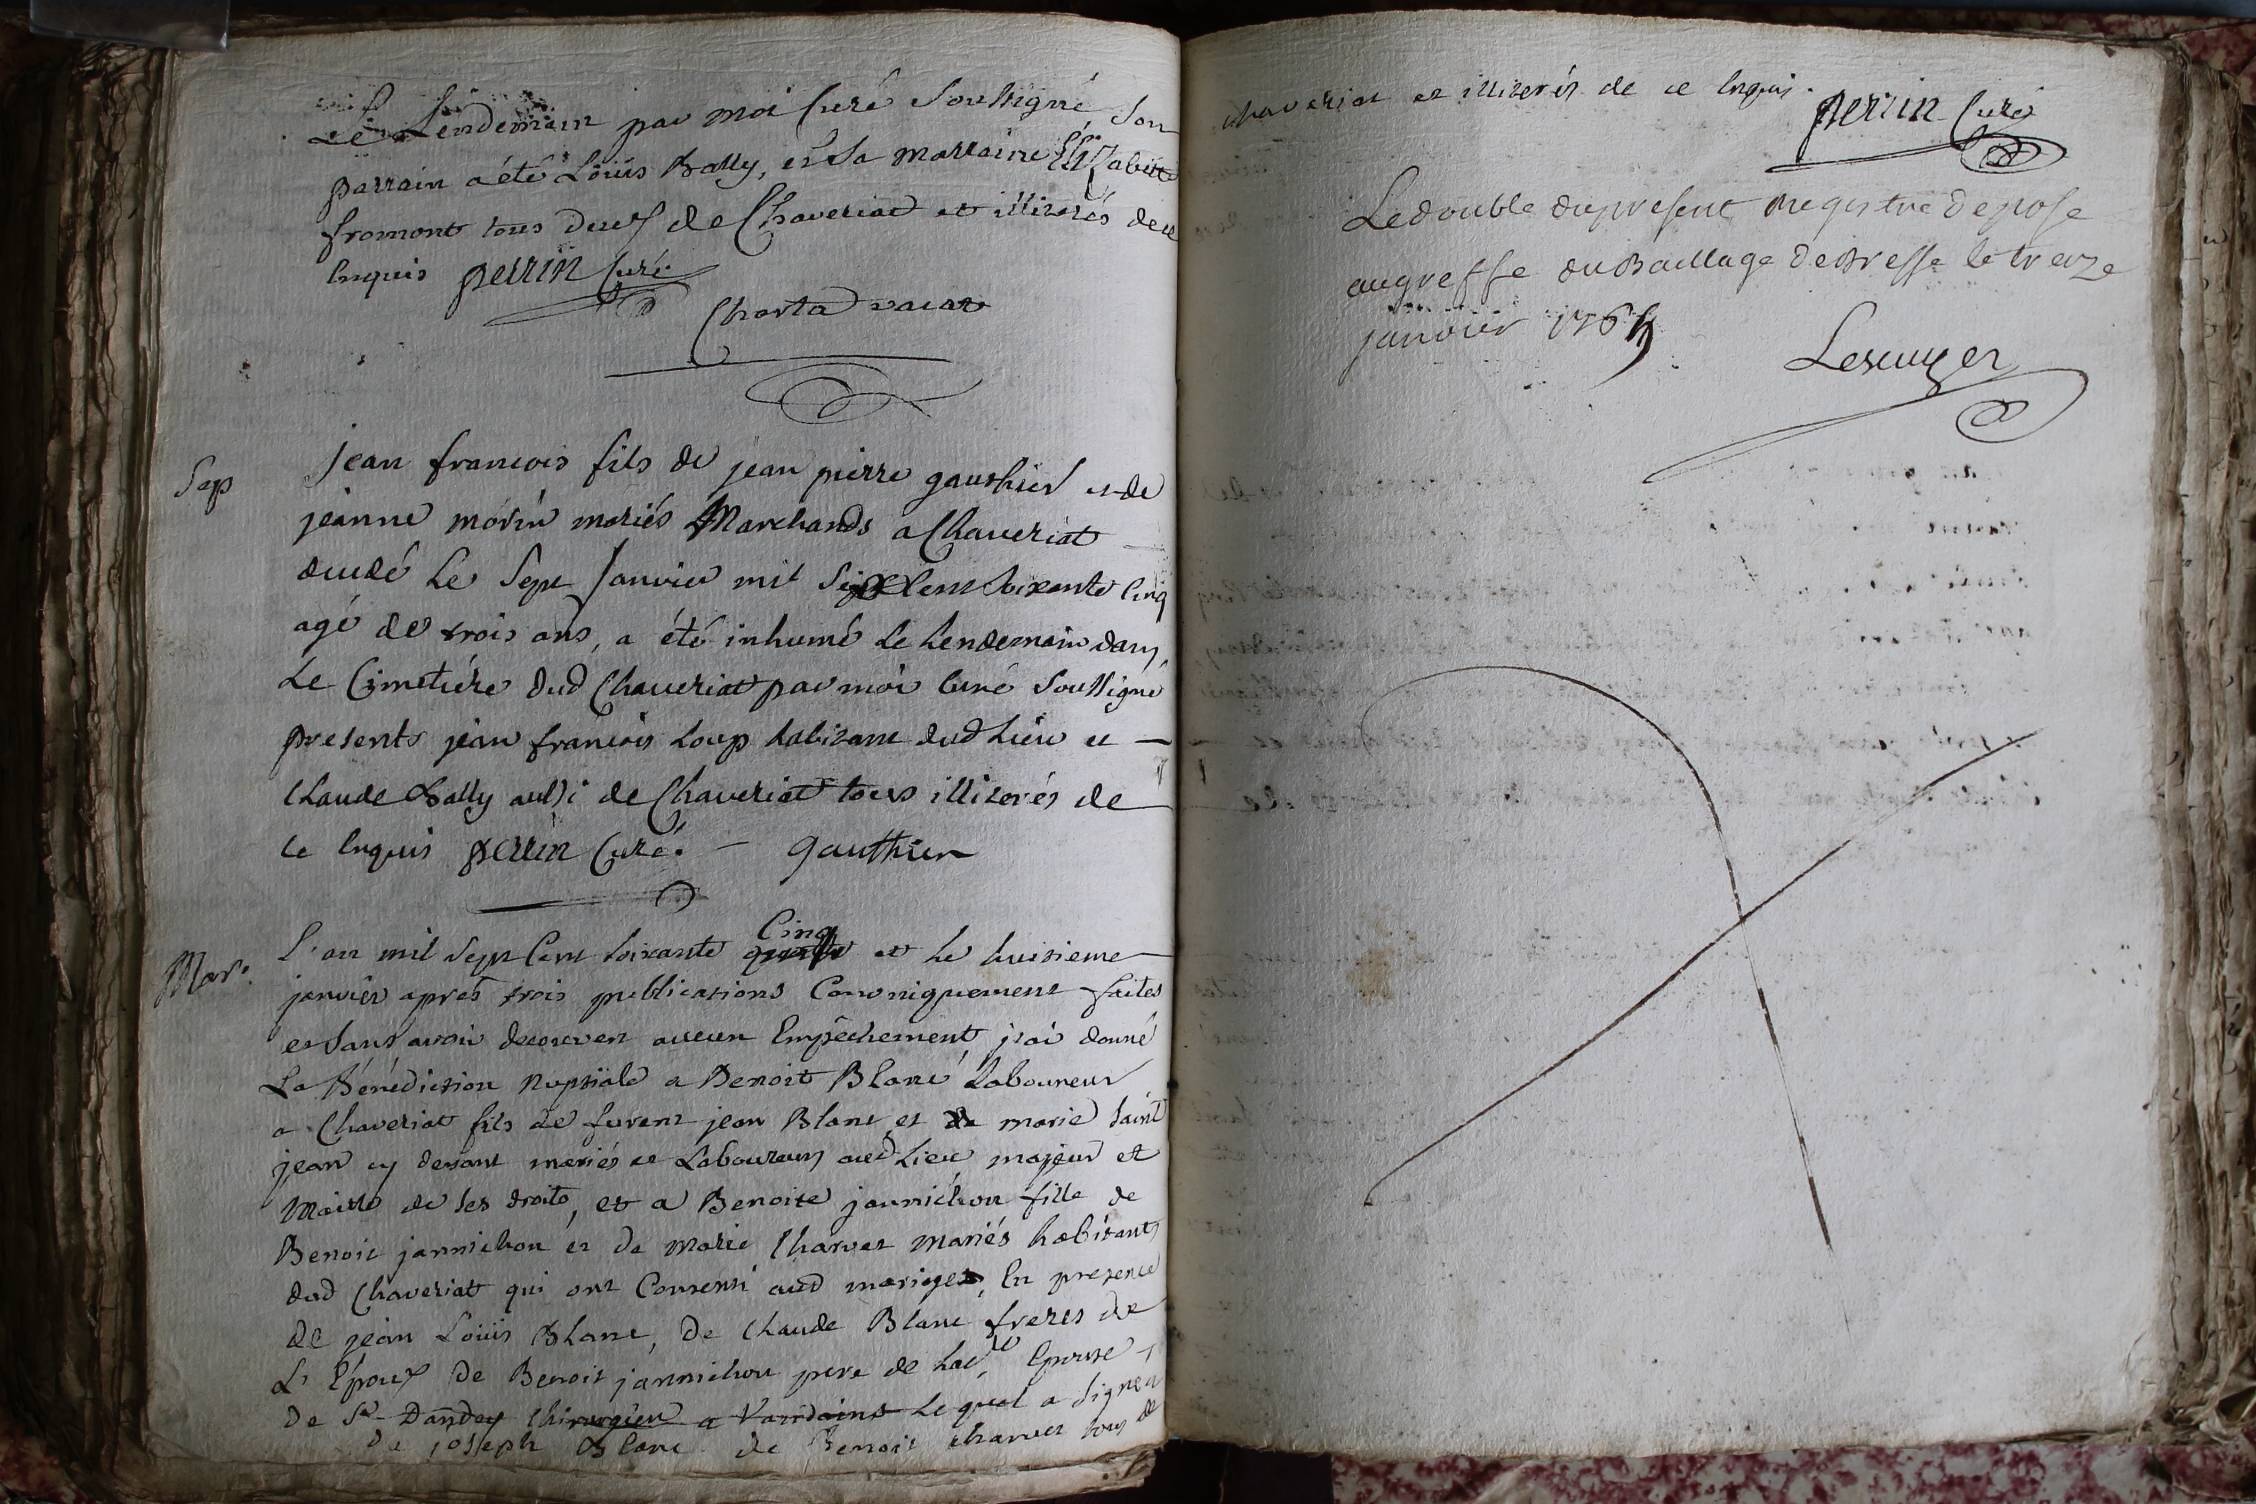 Le Lendemain par moi Curé Soussigné, Son
parrain a été Loüis Bally, et Sa marraine Elizabeth
fromont tous deux de Chaveriat et illiterés de ce
Enquis perrin Curé
Charta vacat
Sep
jean francois fils de jean pierre gauthier et de
jeanne morin mariés Marchands a Chaveriat
décédé Le Sept Janvier mil Sept Cent Soixante Cinq
agé de trois ans, a été inhumé Le Lendemain dans
Le Cimetiére dud Chaveriat par moi Curé Soussigné
presents jean francois Loup habitant dud Lieu et
Claude Bally aussi de Chaveriat tous illiterés de
ce Enquis perrin Curé. gauthier
Mar.
L'an mil Sept Cent Soixante Cinq et Le huitieme
janvier aprés trois publications Canoniquement faites
et Sans avoir decouvert aucun Empêchement j'ai donné
La Bénédiction Nuptiale a Benoit Blanc Laboureur
a Chaveriat fils de furent jean Blanc et de marie Saint
jean cy devant mariés et Laboureurs aud Lieu majeur et
Maitre de Ses droits, et a Benoite jannichon fille de
Benoit jannichon et de Marie Charvet mariés habitants
dud Chaveriat qui ont Consenti aud mariage, En presence
de jean Loüis Blanc, de Claude Blanc freres de
L'Époux De Benoit jannichon pere de Lad.te Epouse
De Sr Dandey Chirurgien a Vandeins Le quel a Signé
De joseph Blanc de Benoit Charvet tous de
Chaveriat et illiterés de ce Enquis.
perrin Curé
Le double du present Registre depose
au greffe du Bailliage de Bresse le treize
janvier 1765
Lescuyer